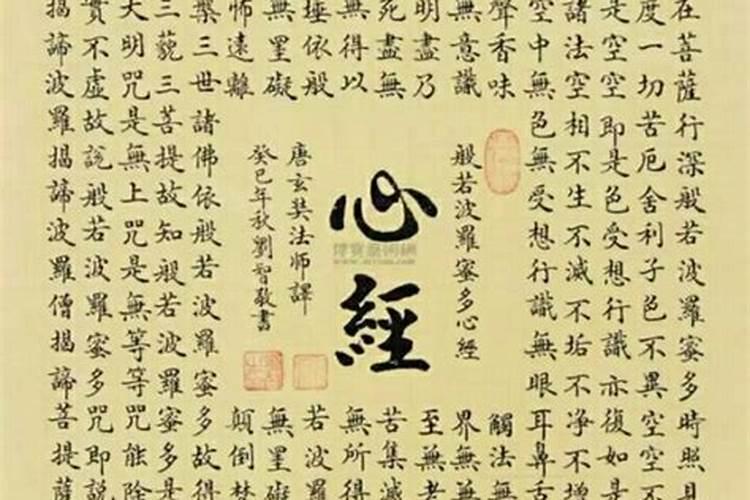 在菩薩行深般若波羅蜜多時照見
度一切苦厄舍利子色不異空空不
是空空即是色受想行識亦復如是
諸法空相不生不滅不垢不淨不增
空中無色無受想行識無眼耳鼻舌
聲香味
觸法無
無意識
界無無
明盡乃
至無老
死盡無
苦集滅
無得以
無所得
埵依般
若波羅
無罣礙
無罣礙
怖遠離
顛倒梦
般若波羅蜜多心經
心經
唐玄奘法師譯
癸巳年秋劉智敬書
槃三世諸佛依般若波羅蜜多故得
三藐三菩提故知般若波羅蜜多是
大明咒是無上咒是無等等咒能除
實不虛故說般若波羅蜜多咒即說
揭諦波羅揭諦波羅僧揭諦菩提薩